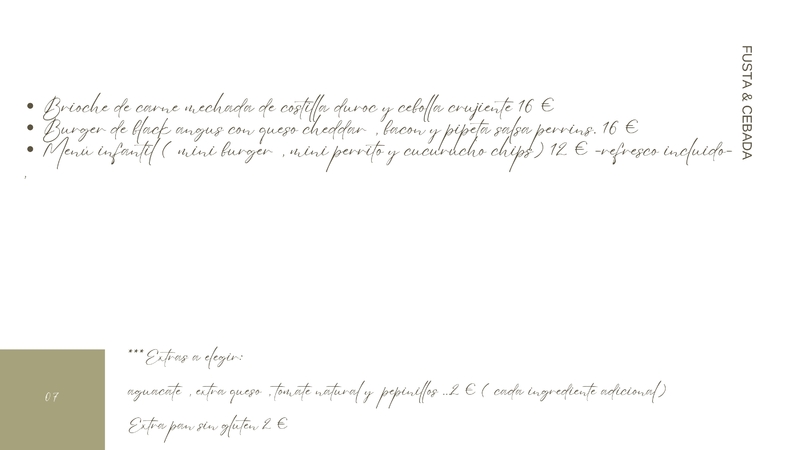 FUSTA & CEBADA
• Brioche de carne mechada de costilla duroc y cebolla crujiente 16 €
• Burger de black angus con queso cheddar , bacon y pipeta salsa perrins. 16 €
• Menú infantil ( mini burger , mini perrito y cucurucho chips ) 12 € -refresco incluido-
,
***Extras a elegir:
aguacate , extra queso , tomate natural y pepinillos ..2 € ( cada ingrediente adicional)
Extra pan sin gluten 2 €
07